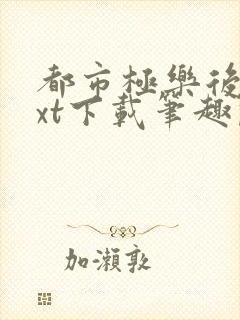 都市極樂後
xt下載筆趣
加瀨敦